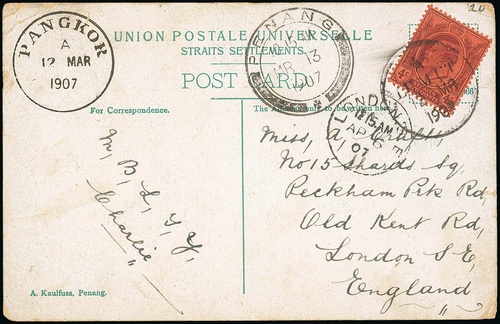 20
PANGKOR
A
12 MAR
1907
UNION POSTALE UNIVERSELLE
STRAITS SETTLEMENTS.
POST CARD.
PENANG
13
1907
LONDON
12.15AM
AP 6
07
For Correspondence.
The Address only to be written here.
M, B, L, Y, Y,
Charlie
Miss, A
No 15 Shards Sq,
Peckham Prk Rd,
Old Kent Rd,
London S E,
England
A. Kaulfuss, Penang.